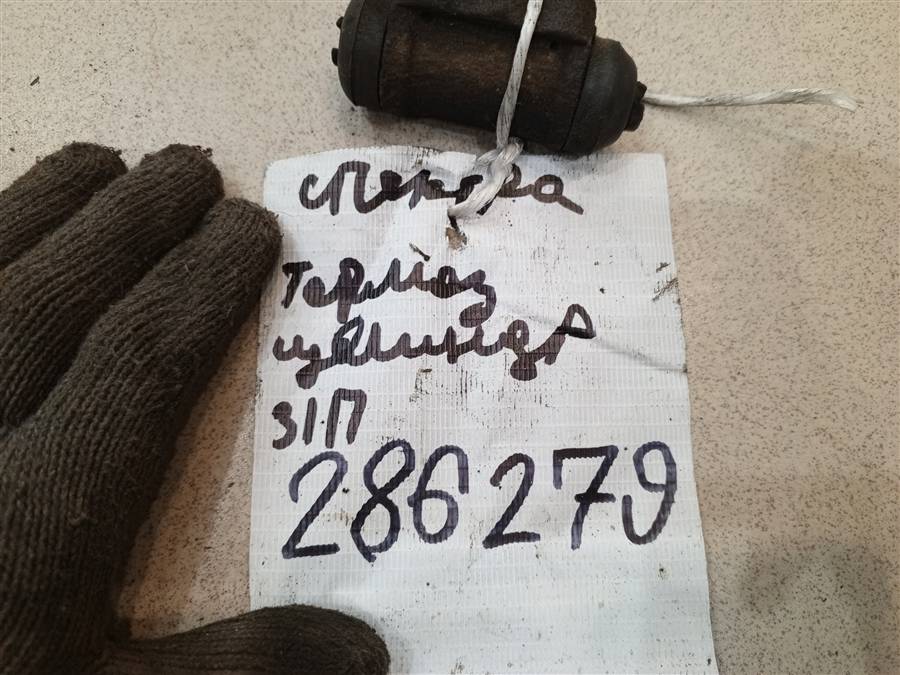 спектра
Тормоз
цилиндр
З1П
286279